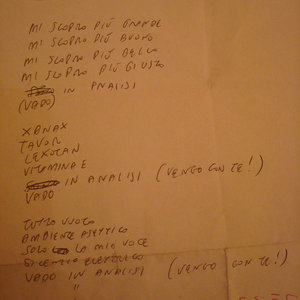 MI SCOPRO PIÙ GRANDE
MI SCOPRO PIÙ BUONO
MI SCOPRO PIÙ BELLO
MI SCOPRO PIÙ GIUSTO
IN ANALISI
(VADO)
XANAX
TAVOR
LEXOTAN
VITAMINA E
IN ANALISI (VENGO CON TE!)
VADO
TUTTO VUOTO
AMBIENTE ASETTICO
SOLO LA MIA VOCE
SILENZIO ELETTRICO
VADO IN ANALISI (VENGO CON TE!)
"